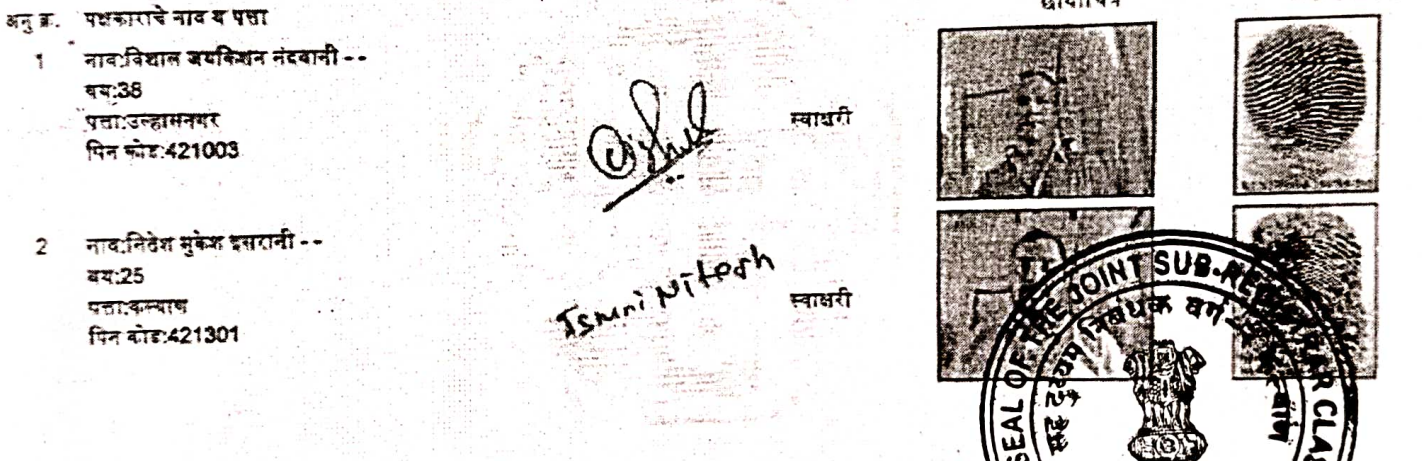 अनु क्र. पक्षकाराचे नाव व पत्ता
छायाचित्र
1 नाव:विशाल जयकिशन नंदवानी - -
वय:38
पत्ता:उल्हासनगर
पिन कोड:421003
स्वाक्षरी
2 नाव:नितेश मुकेश इसरानी - -
वय:25
पत्ता:कल्याण
पिन कोड:421301
Israni Nitesh
स्वाक्षरी
SEAL OF THE JOINT SUB-REGISTRAR CLASS
सह दुय्यम निबंधक वर्ग